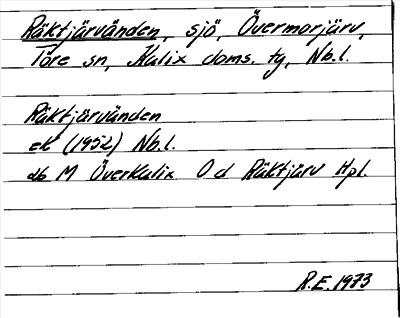 Räktjärvänden, sjö, Övermorjärv,
Töre sn, Kalix doms. tg, Nb.l.
Räktjärvänden
ek (1952) Nb.l.
db M Överkalix O d Räktjärv Hpl.
R.E. 1973